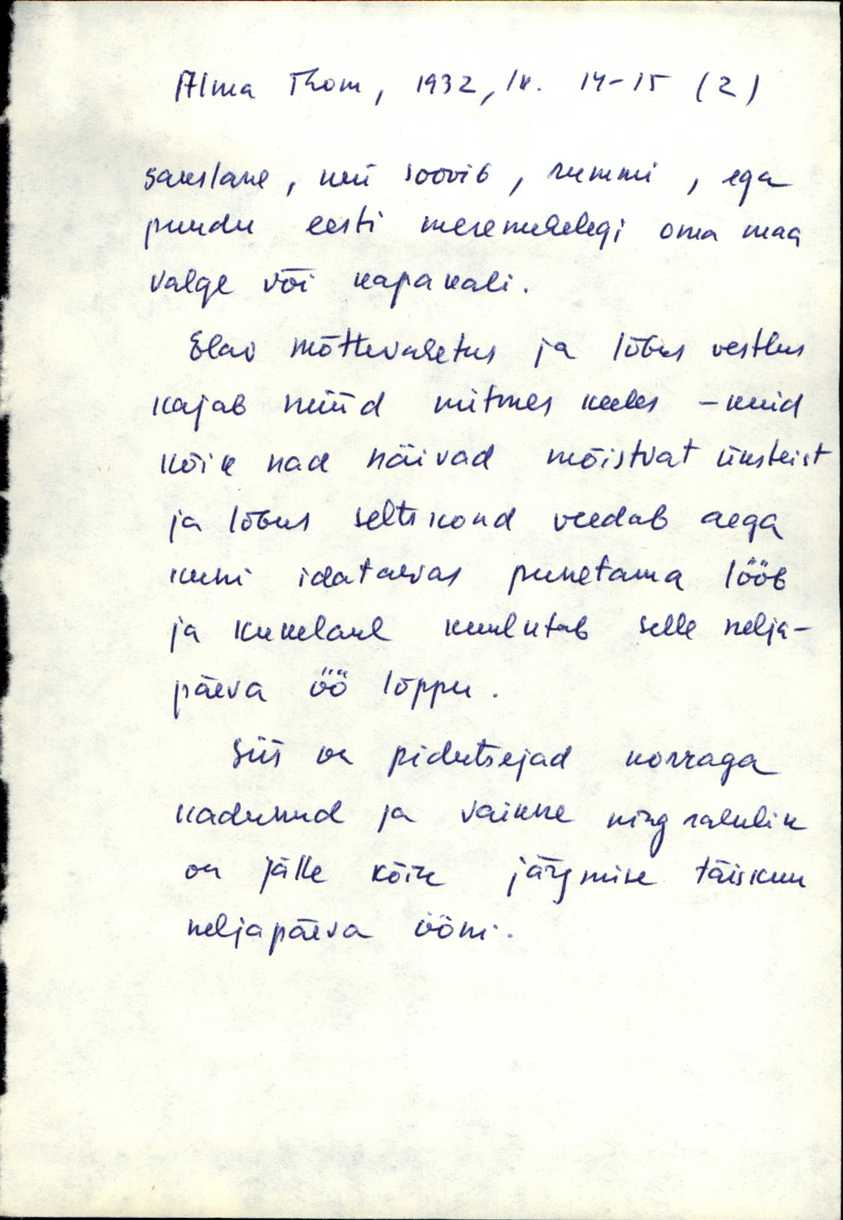 Alma Thom, 1932, lk. 14-15 (2)
sakslane, kui soovib, rummi, ega
puudu eesti meremehelegi oma maa
valge või kapakali.
Elav mõttevahetus ja lõbus vestlus
kajab nüüd mitmes keeles - kuid
kõik nad näivad mõistvat üksteist
ja lõbus seltskond veedab aega
kuni idataevas punetama lööb
ja kukelaul kuulutab selle nelja-
päeva öö lõppu.
Siis on pidutsejad korraga
kadunud ja vaikne ning rahulik
on jälle kõik järgmise täiskuu
neljapäeva ööni.